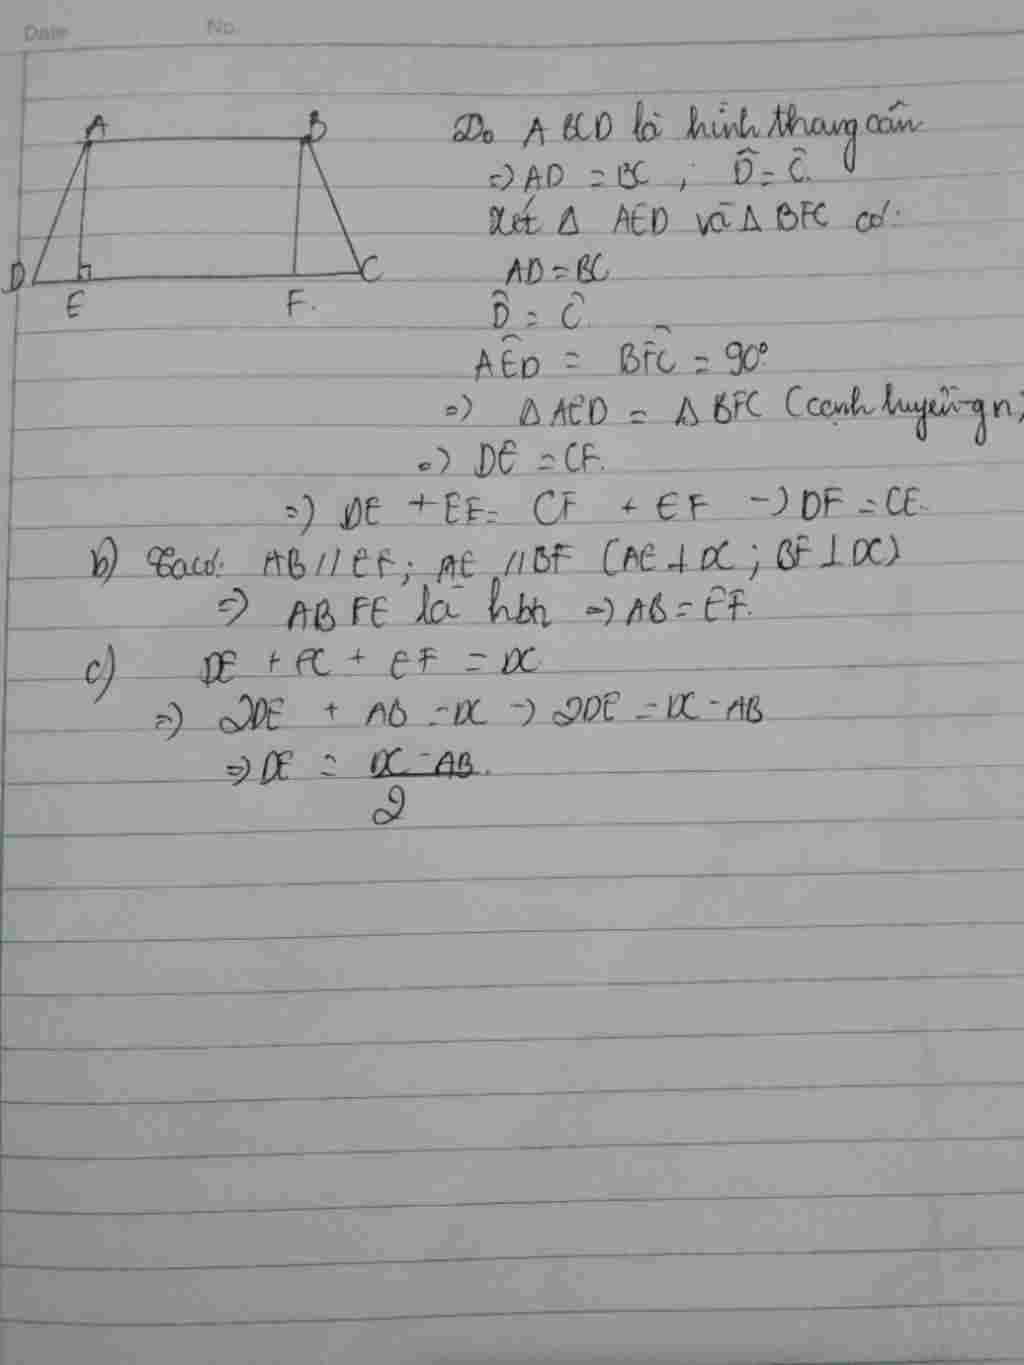 Date No.
A B
D E F. C
Do ABCD là hình thang cân
=> AD = BC ; D̂ = Ĉ.
Xét Δ AED và Δ BFC có:
AD = BC
D̂ = Ĉ.
AÊD = BF̂C = 90°
=> Δ AED = Δ BFC (cạnh huyền-gn;
=> DE = CF.
=> DE + EF = CF + EF -> DF = CE.
b) Ta có: AB // EF; AE // BF (AE ⊥ DC ; BF ⊥ DC)
=> ABFE là hbh => AB = EF.
c) DE + FC + EF = DC
=> 2DE + AB = DC -> 2DE = DC - AB
=> DE = DC - AB.
2